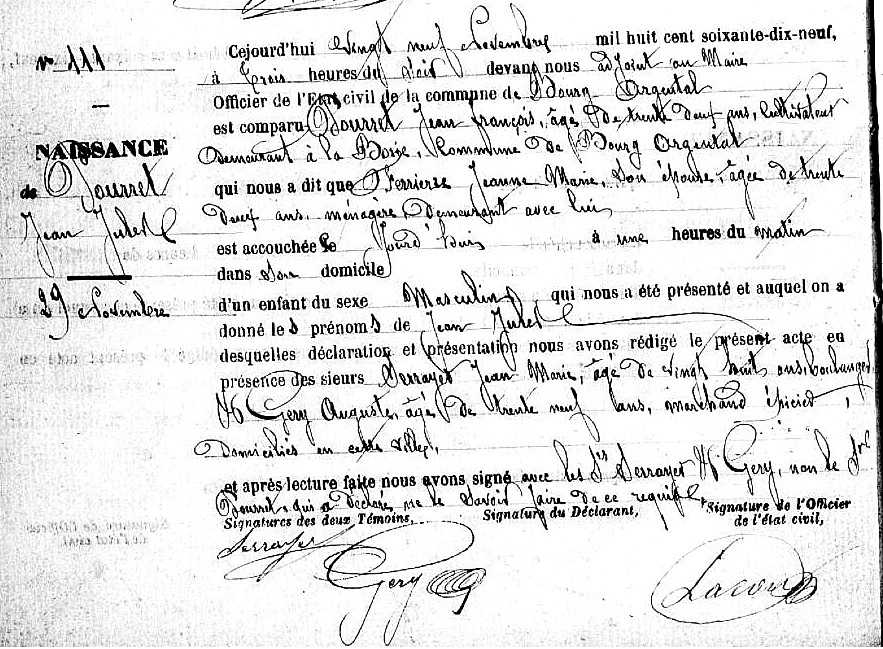 n° 111
NAISSANCE
de Dourret
Jean Jubel
29 Novembre
Cejourd'hui vingt neuf Novembre mil huit cent soixante-dix-neuf,
à trois heures du soir devant nous adjoint au Maire
Officier de l'Etat civil de la commune de Bourg Argental
est comparu Dourret Jean françois, âgé de trente deux ans, Cultivateur
Demeurant à la Commune de Bourg Argental
qui nous a dit que Ferrier Jeanne Marie, son épouse, âgée de trente
deux ans, ménagère Demeurant avec lui
est accouchée ce jourd'hui à une heures du matin
dans son domicile
d'un enfant du sexe Masculin qui nous a été présenté et auquel on a
donné les prénoms de Jean Jubel
desquelles déclaration et présentation nous avons rédigé le présent acte en
présence des sieurs Serrayer Jean Marie, âgé de vingt huit ans, boulanger
Et Gery Auguste, âgé de trente neuf ans, marchand épicier,
Domiciliés en cette ville,
et après lecture faite nous avons signé avec les Srs Serrayer Et Gery, non le Sr
Dourret qui a déclaré ne le savoir faire de ce requis
Signatures des deux Témoins, Signature du Déclarant, Signature de l'Officier
de l'état civil,
Serrayer
Gery